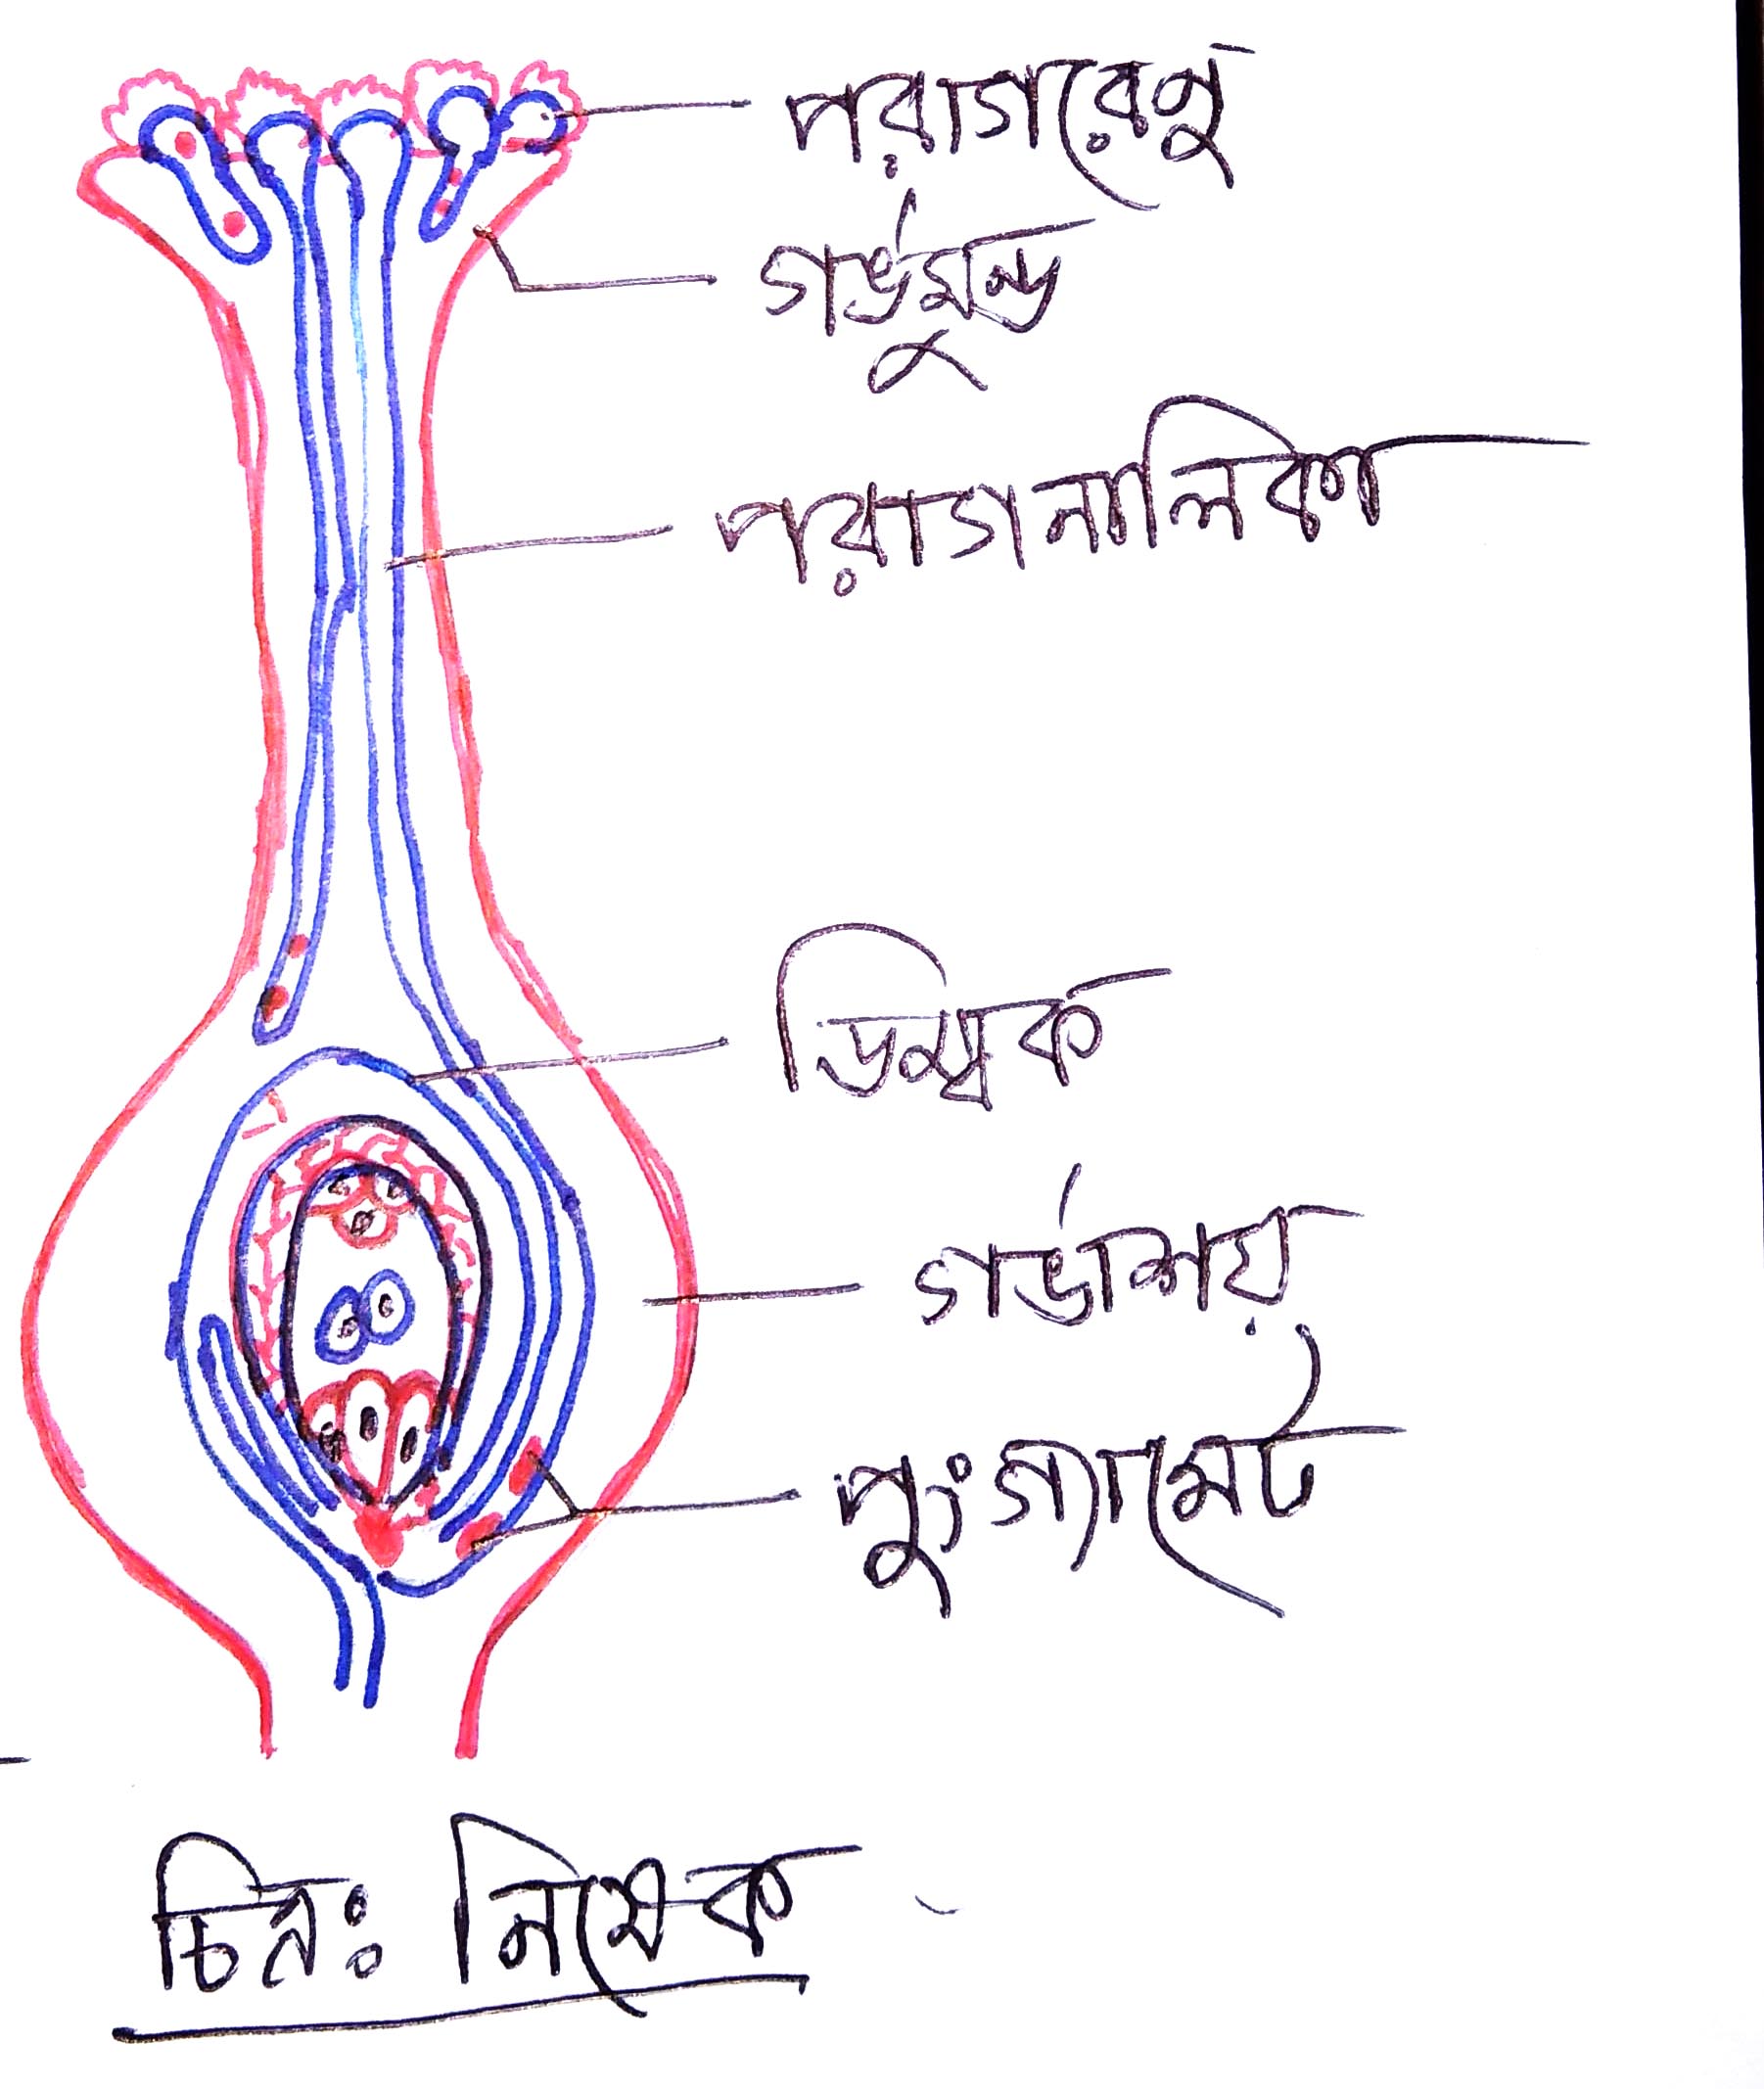 পরাগরেনু
গর্ভমুন্ড
পরাগনালিকা
ডিম্বক
গর্ভাশয়
পুংগ্যামেট
চিত্রঃ নিষেক